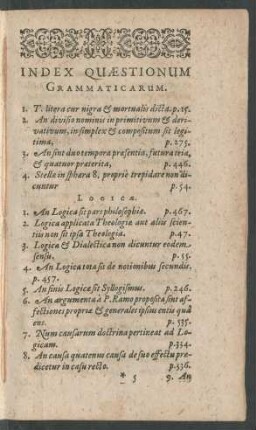 INDEX QUÆSTIONUM
GRAMMATICARUM.
1. T. litera cur nigra & mortualis dicta. p. 15.
2. An divisio nominis in primitivum & deri-
vativum, in simplex & compositum sit legi-
tima, p. 273.
3. An sint duo tempora præsentia, futura tria,
& quatuor præterita, p. 446.
4. Stellæ in sphæra 8. propriè trepidare non di-
cuntur p. 54.
LOGICÆ.
1. An Logica sit pars philosophiæ. p. 467.
2. Logica applicata Theologiæ aut aliis scien-
tiis non sit ipsa Theologia. p. 47.
3. Logica & Dialectica non dicuntur eodem
sensu. p. 55.
4. An Logica tota sit de notionibus secundis.
p. 457.
5. An finis Logicæ sit Syllogismus. p. 246.
6. An argumenta à P. Ramo proposita sint af-
fectiones propriæ & generales ipsius entis quà
ens. p. 535.
7. Num causarum doctrina pertineat ad Lo-
gicam. p. 334.
8. An causa quatenus causa de suo effectu præ-
dicetur in casu recto. p. 336.
* 5 9. An